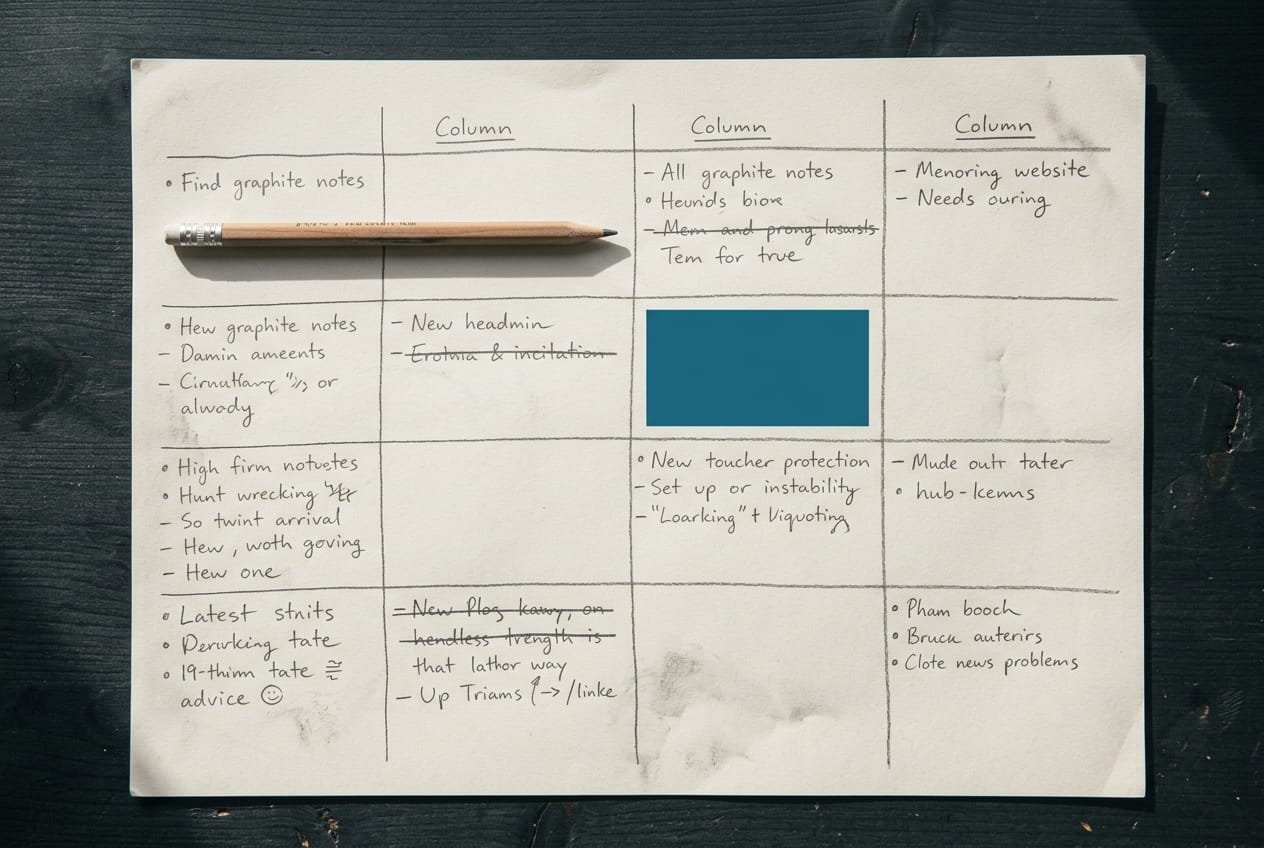 Column
Column
Column
• Find graphite notes
- All graphite notes
• Heurids biove
- Mem and prong lasarsts
Tem for true
- Menoring website
- Needs ouring
• Hew graphite notes
- Damin ameents
- or
alwody
- New headmin
- Erotnia & incitation
• High firm notvetes
• Hunt wrecking
- So twint arrival
- Hew, woth goving
- Hew one
• New toucher protection
- Set up or instability
- "Loarking" + Viquoting
- Mude outr tater
• hub-kenns
• Latest stnits
• Derwrking tate
• 19-thinn tate ≅
advice ☺
- New Plog kawy, on
hendless trength is
that lathor way
- Up Triams /linke
• Pham booch
• Bruca auterirs
• Clote news problems